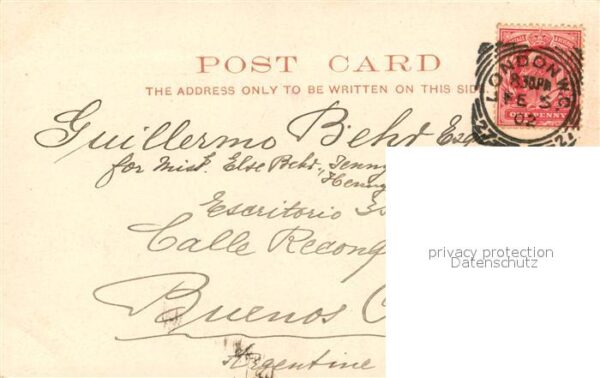 POST CARD
THE ADDRESS ONLY TO BE WRITTEN ON THIS SIDE
LONDON W.C
8.30PM
FE 5
02
22
ONE PENNY
Guillermo Behr Esq
for Miss. Else Behr, Jenny
Henny
Escritorio
Calle Reconq
Buenos
Argentine
privacy protection
Datenschutz